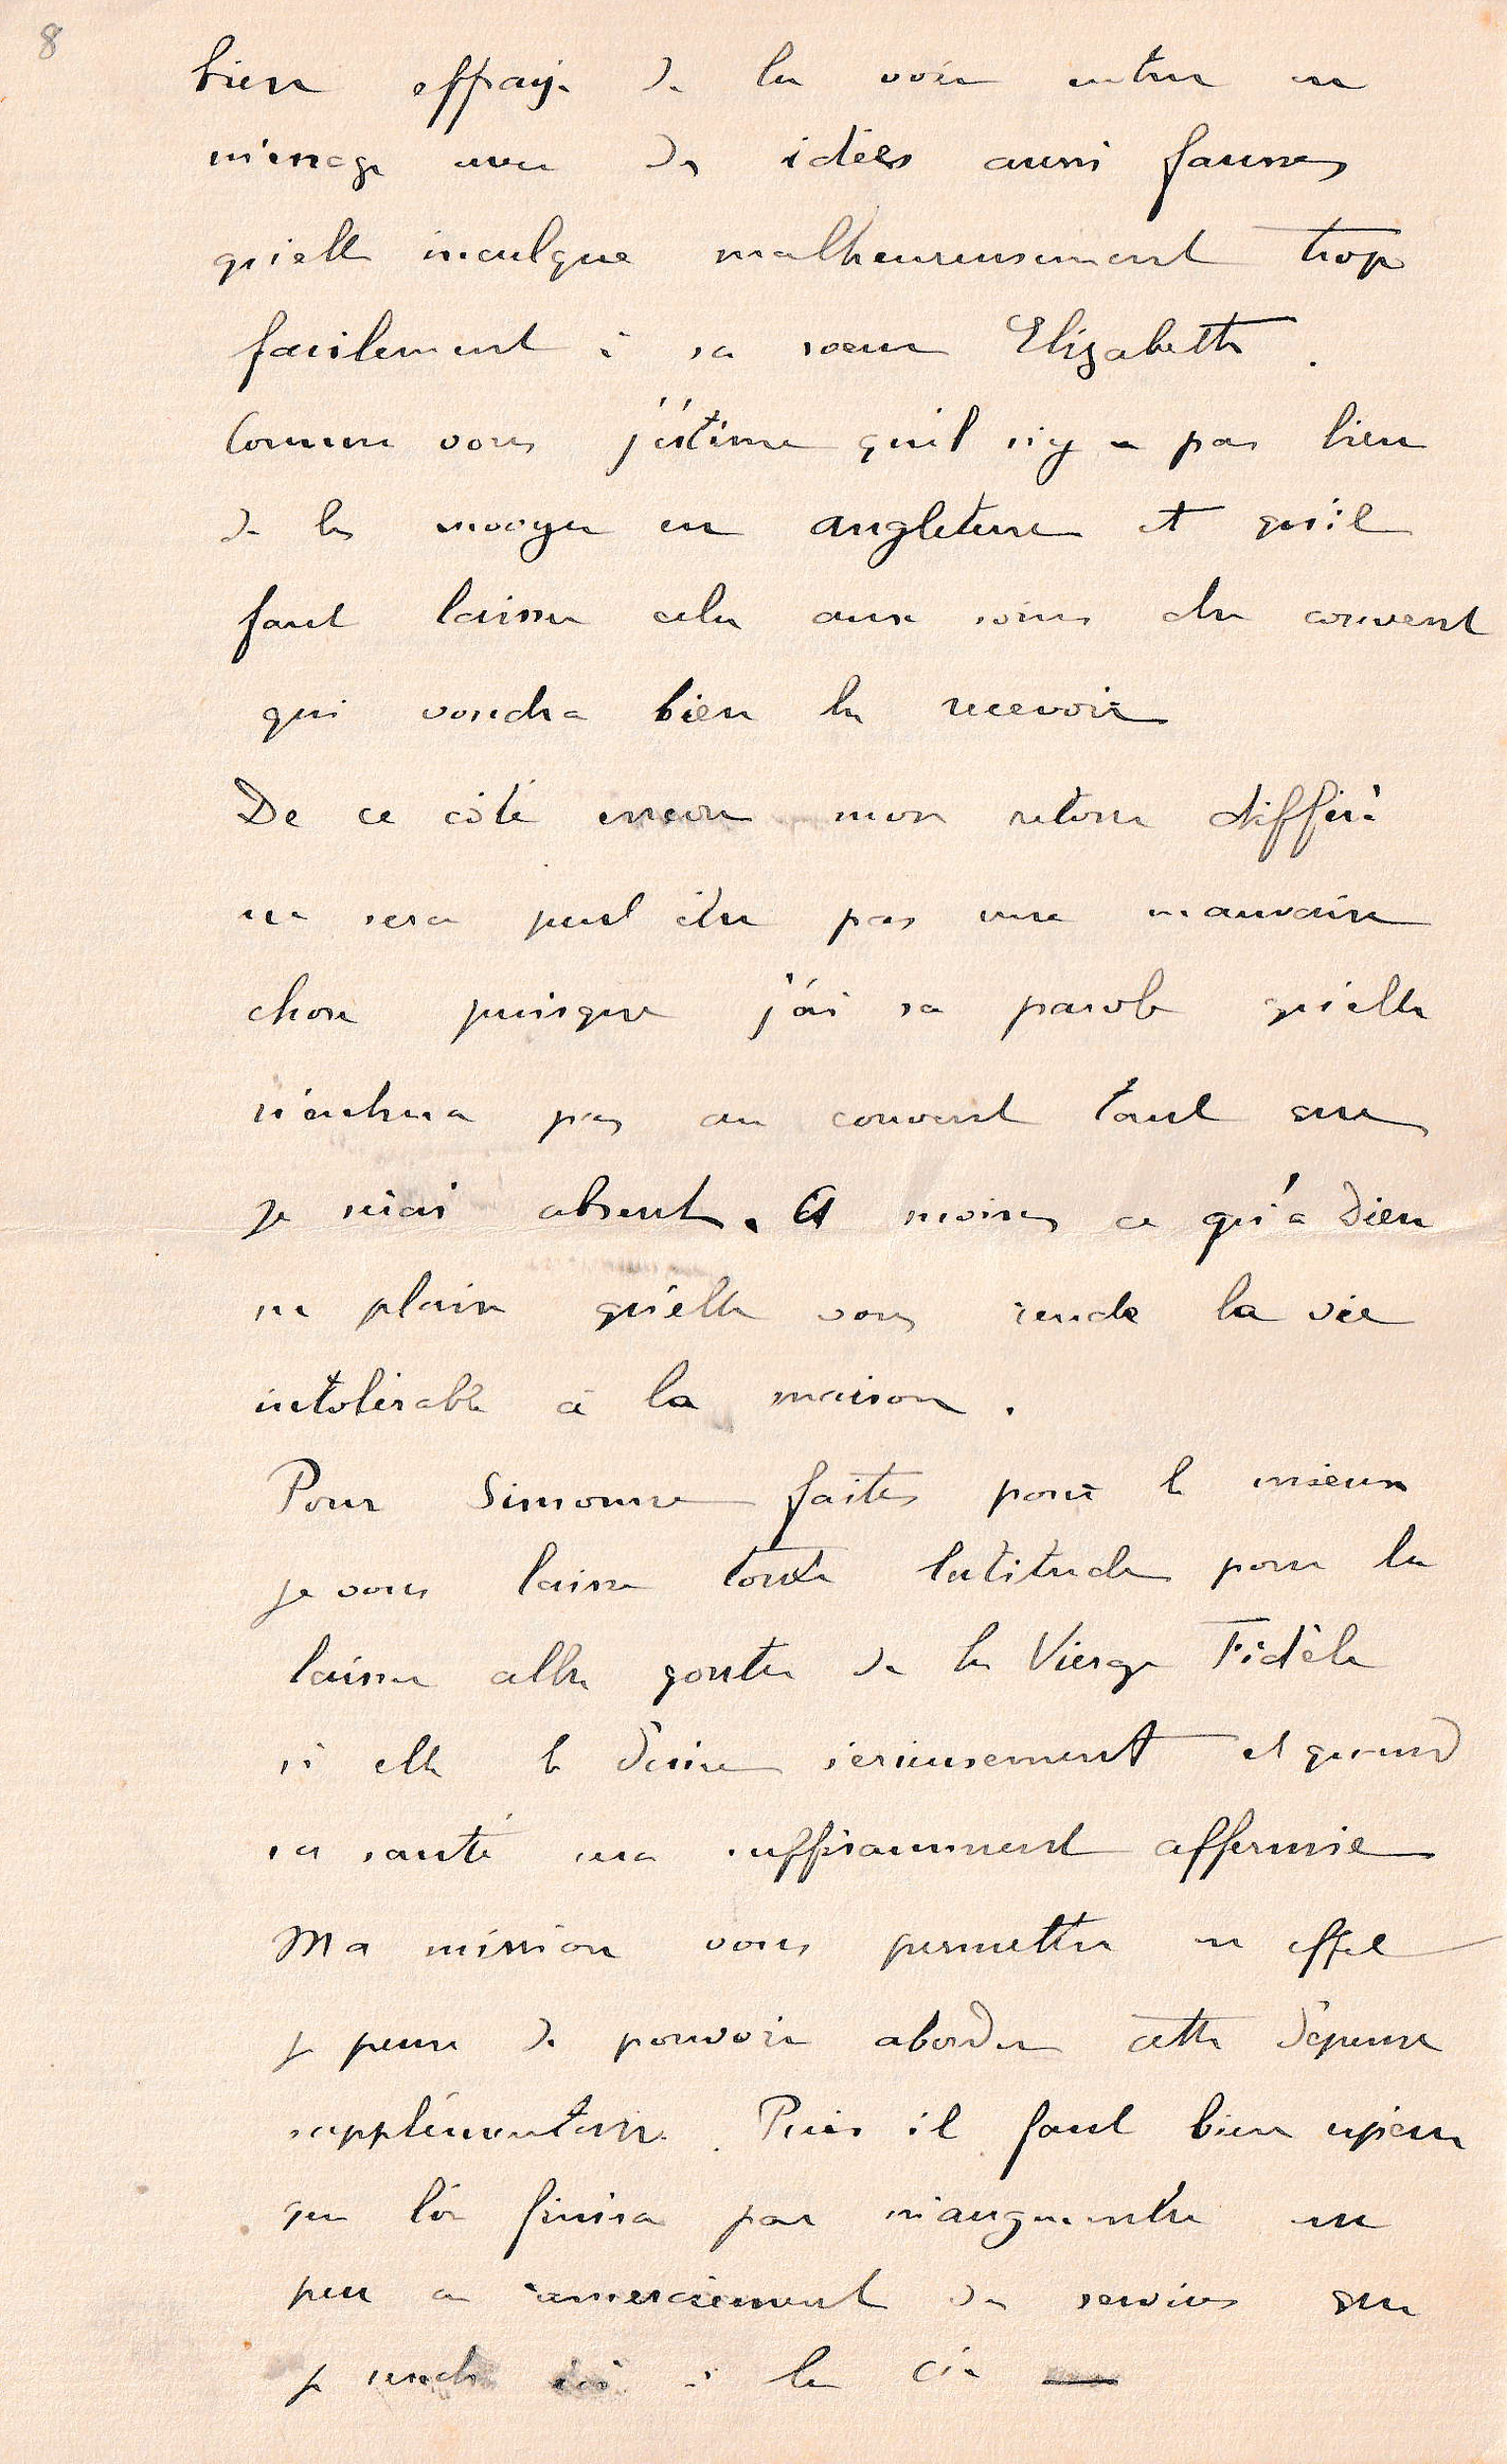 8
bien effrayé de la voir entrer en
ménage avec des idées aussi fausses
qu'elle inculque malheureusement trop
facilement à sa soeur Elizabeth.
Comme vous j'estime qu'il n'y a pas lieu
de les envoyer en angleterre et qu'il
faut laisser cela aux soins du couvent
qui voudra bien la recevoir
De ce côté encore mon retour différé
ne sera peut être pas une mauvaise
chose puisque j'ai sa parole qu'elle
n'entrera pas au couvent tant que
je serai absent. A moins ce qu'à Dieu
ne plaise qu'elle vous rende la vie
intolérable à la maison.
Pour Simonne faites pour le mieux
je vous laisse toute latitude pour la
laisser aller goutter de la Vierge Fidèle
si elle le désire serieusement et quand
sa santé sera suffisamment affermie
Ma mission vous permettra en effet
je pense de pouvoir aborder cette dépense
supplémentaire. Puis il faut bien espérer
que l'on finira par m'augmenter un
peu en remerciement des services que
je rends ici à la Cie